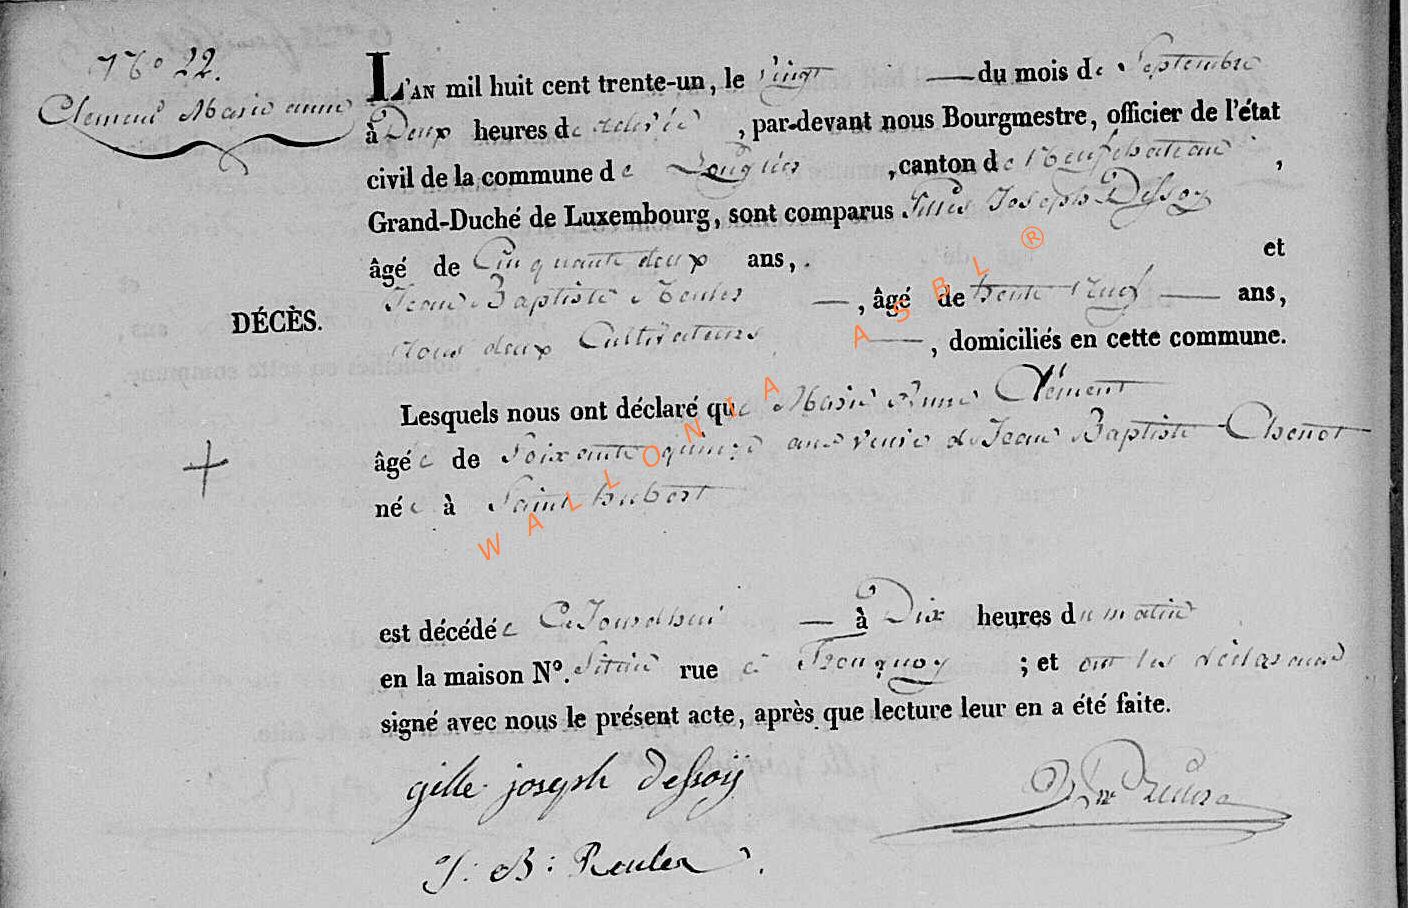 N° 22.
Clement Marie anne
L'AN mil huit cent trente-un, le vingt du mois de Septembre
à Deux heures de relevée, par-devant nous Bourgmestre, officier de l'état
civil de la commune de Longlier, canton de Neufchateau,
Grand-Duché de Luxembourg, sont comparus Gilles Joseph Dessoy
âgé de Cinquante deux ans, et
Jean Baptiste Reuler, âgé de trente neuf ans,
DÉCÈS.
tous deux Cultivateurs, domiciliés en cette commune.
Lesquels nous ont déclaré que Marie Anne Clément
âgée de Soixante quinze ans veuve de Jean Baptiste Chenot
née à Saint hubert
est décédée Cejourdhui à Dix heures du matin
en la maison N°. Située rue à Tronquoy ; et ont les déclarans
signé avec nous le présent acte, après que lecture leur en a été faite.
gille joseph dessoÿ
J. B: Reuler
WALLONIA ASBL ®